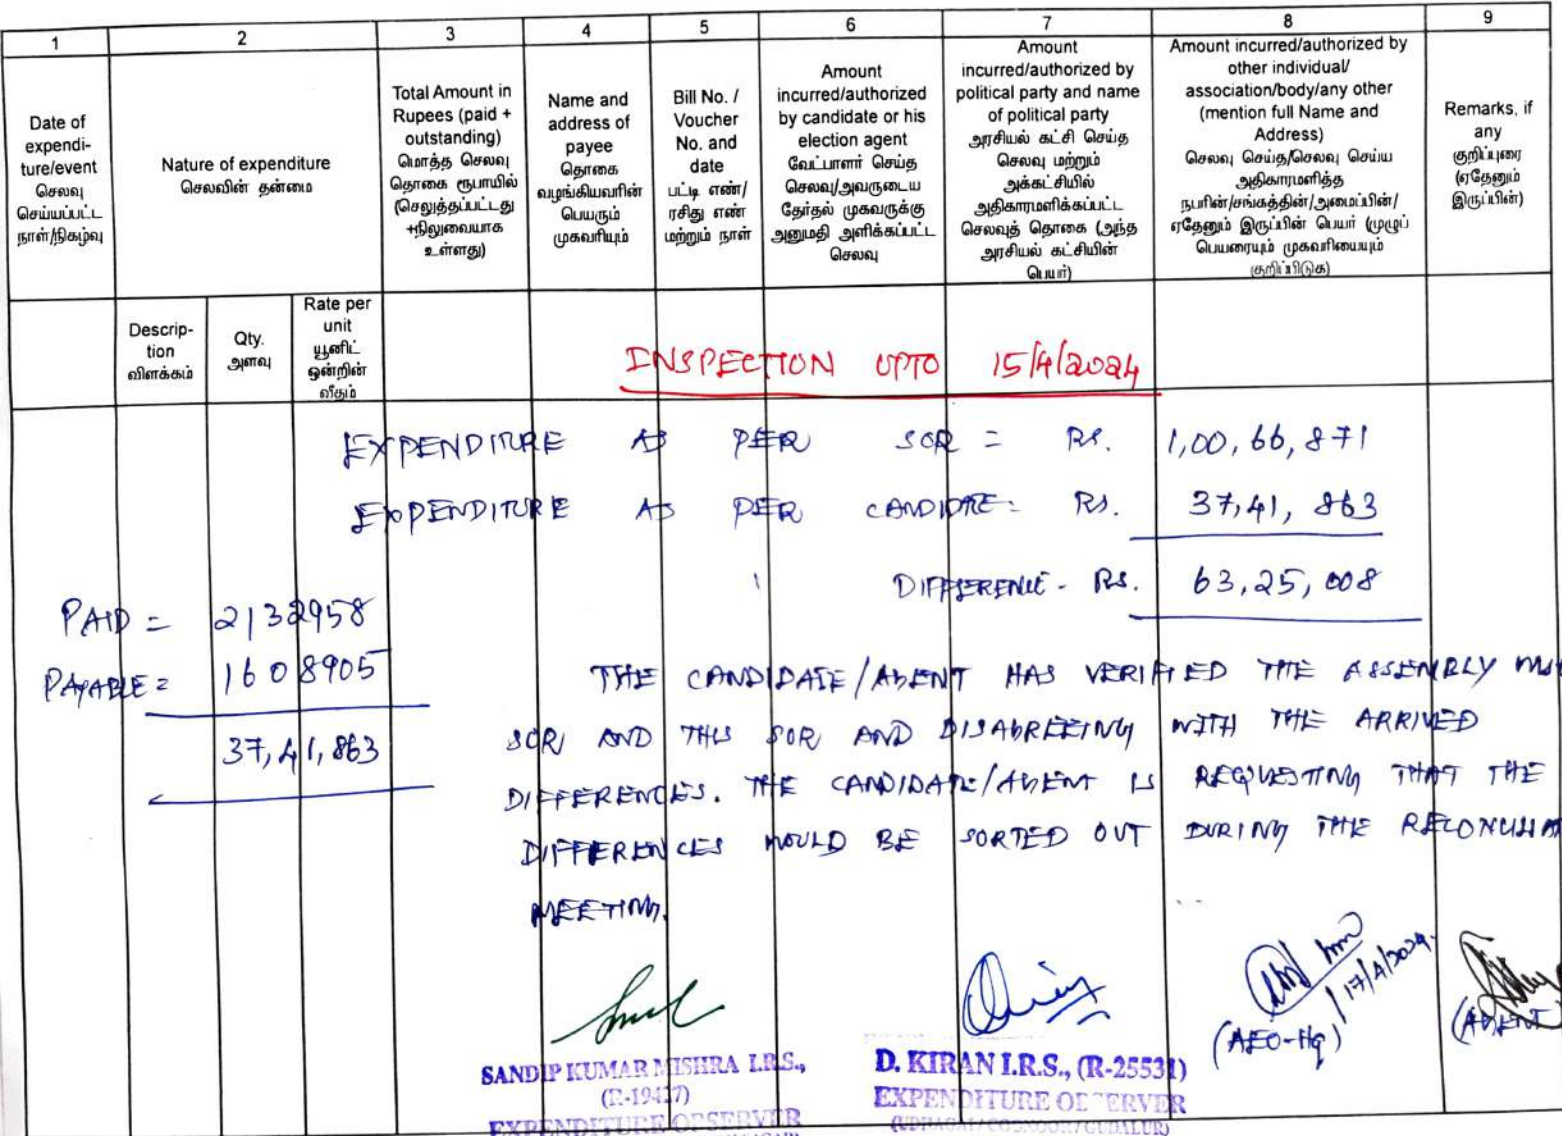 1 2 3 4 5 6 7 8 9
Date of
expendi-
ture/event
செலவு
செய்யப்பட்ட
நாள்/நிகழ்வு
Nature of expenditure
செலவின் தன்மை
Total Amount in
Rupees (paid +
outstanding)
மொத்த செலவு
தொகை ரூபாயில்
(செலுத்தப்பட்டது
+நிலுவையாக
உள்ளது)
Name and
address of
payee
தொகை
வழங்கியவரின்
பெயரும்
முகவரியும்
Bill No. /
Voucher
No. and
date
பட்டி எண்/
ரசிது எண்
மற்றும் நாள்
Amount
incurred/authorized
by candidate or his
election agent
வேட்பாளர் செய்த
செலவு/அவருடைய
தேர்தல் முகவருக்கு
அனுமதி அளிக்கப்பட்ட
செலவு
Amount
incurred/authorized by
political party and name
of political party
அரசியல் கட்சி செய்த
செலவு மற்றும்
அக்கட்சியில்
அதிகாரமளிக்கப்பட்ட
செலவுத் தொகை (அந்த
அரசியல் கட்சியின்
பெயர்)
Amount incurred/authorized by
other individual/
association/body/any other
(mention full Name and
Address)
செலவு செய்த/செலவு செய்ய
அதிகாரமளித்த
நபரின்/சங்கத்தின்/அமைப்பின்/
ஏதேனும் இருப்பின் பெயர் (முழுப்
பெயரையும் முகவரியையும்
குறிப்பிடுக)
Remarks, if
any
குறிப்புரை
(ஏதேனும்
இருப்பின்)
Descrip-
tion
விளக்கம்
Qty.
அளவு
Rate per
unit
யூனிட்
ஒன்றின்
வீதம்
INSPECTION UPTO 15/4/2024
EXPENDITURE AS PER SOR = RS. 1,00,66,871
EXPENDITURE AS PER CANDIDATE = RS. 37,41,863
DIFFERENCE - RS. 63,25,008
PAID = 2132958
PAYABLE = 1608905
37,41,863
THE CANDIDATE/AGENT HAS VERIFIED THE ASSEMBLY
SOR AND THIS SOR AND DISAGREEING WITH THE ARRIVED
DIFFERENCES. THE CANDIDATE/AGENT IS REQUESTING THAT THE
DIFFERENCES WOULD BE SORTED OUT DURING THE
MEETING.
17/4/2024
(AEO-Hq)
(AGENT)
SANDIP KUMAR MISHRA I.R.S.,
(R-19427)
EXPENDITURE OBSERVER
D. KIRAN I.R.S., (R-25531)
EXPENDITURE OBSERVER
(UDHAGAI/COONOOR/GUDALUR)